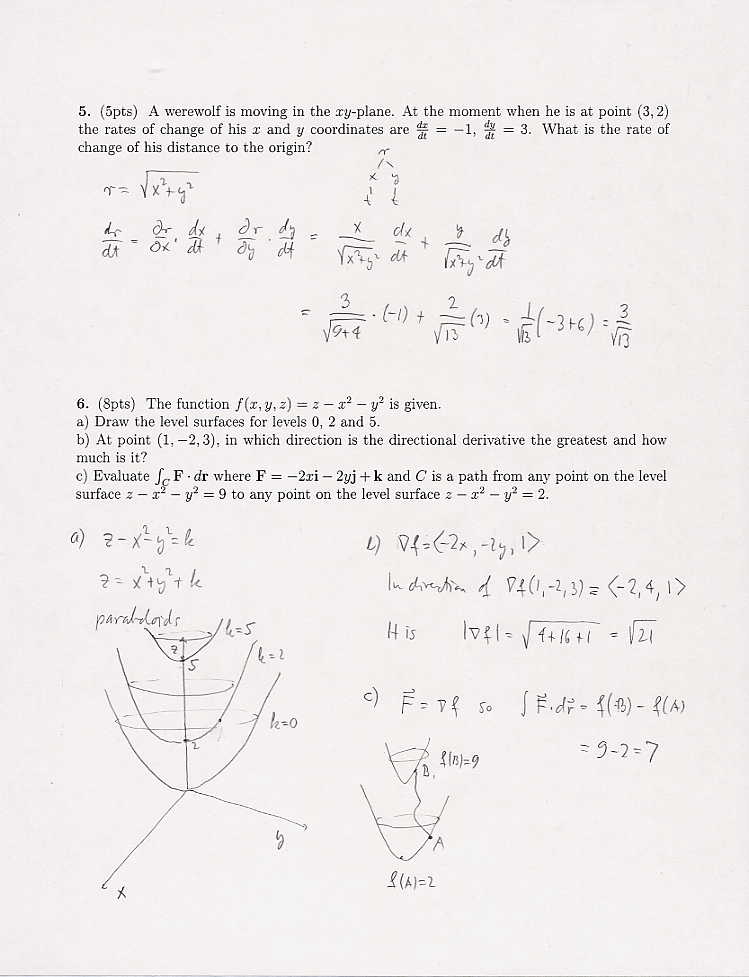 5. (5pts) A werewolf is moving in the xy-plane. At the moment when he is at point (3, 2)
the rates of change of his x and y coordinates are dx/dt = −1, dy/dt = 3. What is the rate of
change of his distance to the origin?
r
x y
t t
r = √(x²+y²)
dr/dt = ∂r/∂x · dx/dt + ∂r/∂y · dy/dt = x/√(x²+y²) dx/dt + y/√(x²+y²) dy/dt
= 3/√(9+4) · (-1) + 2/√13 (3) = 1/√13 (-3+6) = 3/√13
6. (8pts) The function f(x, y, z) = z − x² − y² is given.
a) Draw the level surfaces for levels 0, 2 and 5.
b) At point (1, −2, 3), in which direction is the directional derivative the greatest and how
much is it?
c) Evaluate ∫_C F · dr where F = −2xi − 2yj + k and C is a path from any point on the level
surface z − x² − y² = 9 to any point on the level surface z − x² − y² = 2.
a) z - x² - y² = k
z = x² + y² + k
paraboloids
k=5
z
5
k=2
k=0
2
y
x
b) ∇f = <-2x, -2y, 1>
In direction of ∇f(1,-2,3) = <-2, 4, 1>
It is |∇f| = √(4+16+1) = √21
c) F = ∇f so ∫ F · dr = f(B) - f(A)
= 9-2 = 7
B, f(B)=9
A
f(A)=2